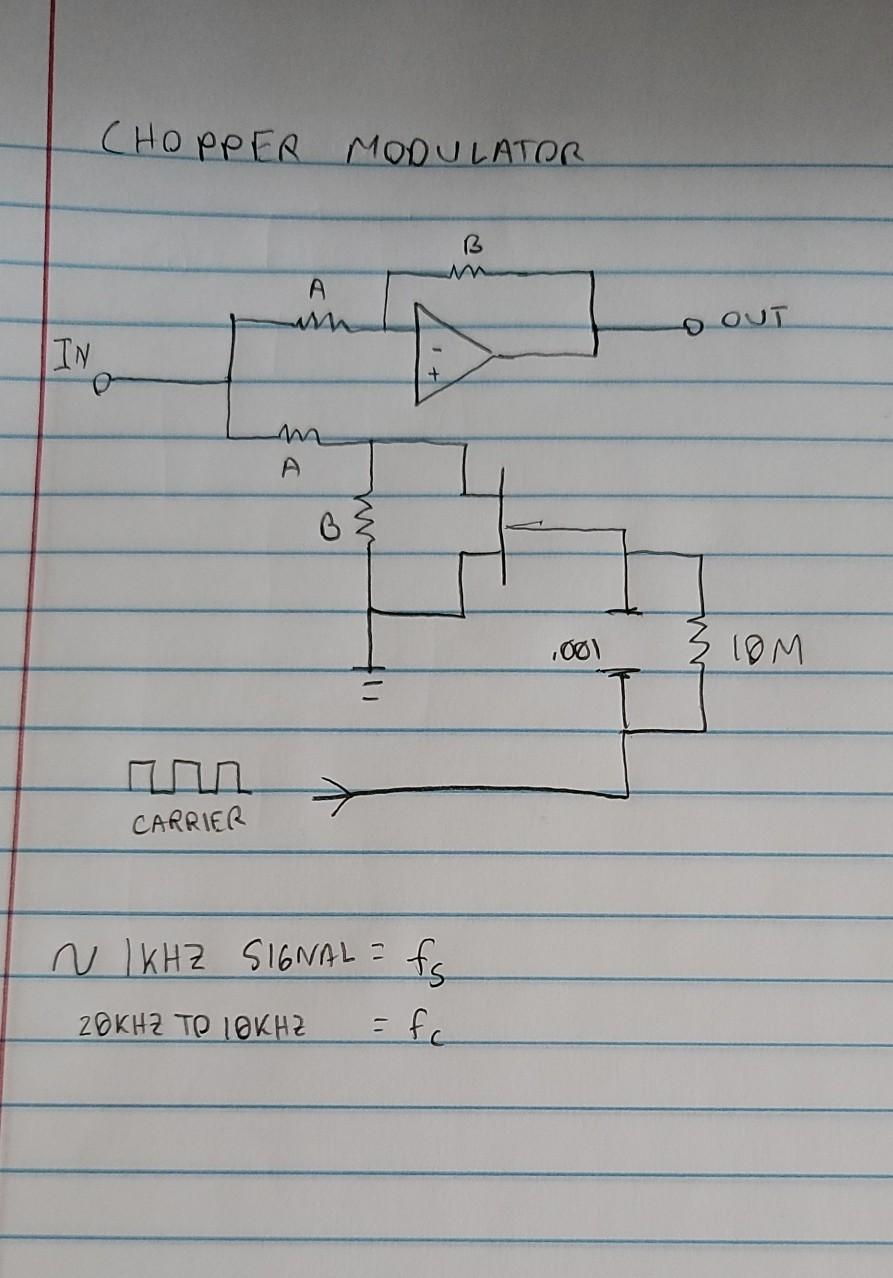 CHOPPER MODULATOR
B
A
IN
-
+
OUT
A
B
.001
10M
CARRIER
~ 1KHZ SIGNAL = fs
20KHZ TO 10KHZ = fc